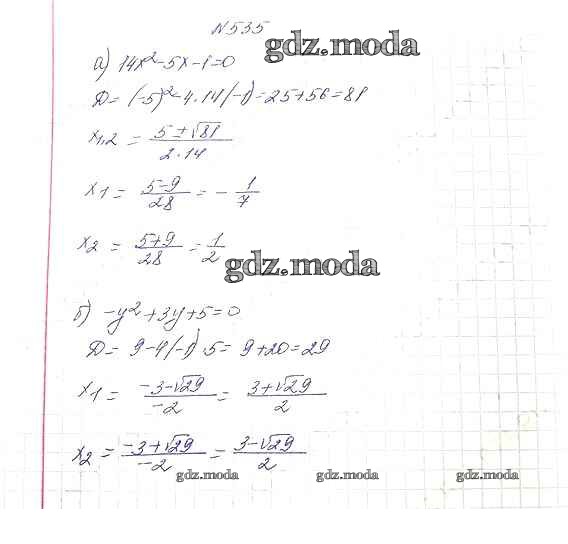 N535
gdz.moda
а) 14x²-5x-1=0
Д= (-5)²-4·14(-1)=25+56=81
x1,2 = (5±√81)/(2·14)
x1 = (5-9)/28 = -1/7
x2 = (5+9)/28 = 1/2
gdz.moda
б) -y²+3y+5=0
Д= 9-4(-1)·5= 9+20=29
x1 = (-3-√29)/(-2) = (3+√29)/2
x2 = (-3+√29)/(-2) = (3-√29)/2
gdz.moda gdz.moda gdz.moda